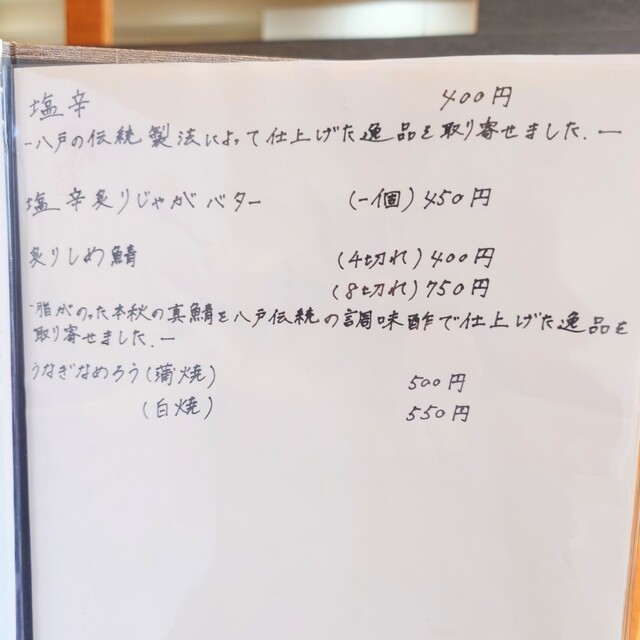 塩辛 400円
-八戸の伝統製法によって仕上げた逸品を取り寄せました.ー
塩辛炙りじゃがバター (一個)450円
炙りしめ鯖 (4切れ)400円
(8切れ)750円
-脂がのった本秋の真鯖を八戸伝統の調味酢で仕上げた逸品を
取り寄せました.ー
うなぎなめろう(蒲焼) 500円
(白焼) 550円